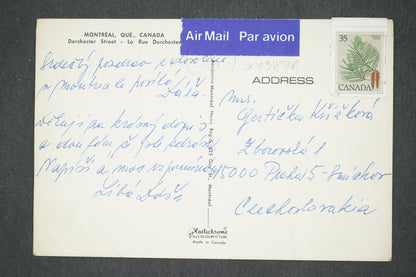 MONTRÉAL, QUÉ., CANADA
Dorchester Street - La Rue Dorchester
Air Mail Par avion
35
CANADA
ADDRESS
Srdečný pozdrav z dovolené
z Montrealu posílá
Dáša
Děkuji za krásný dopis
a doufám, že jste zdrávi
Napíši a moc vzpomínám
Líbá Dáša
Mrs.
Gertička Křížková
Zborovská 1
15000 Praha 5 - Smíchov
Czechoslovakia
Plastichrome
by COLOURPICTURE
Made in Canada